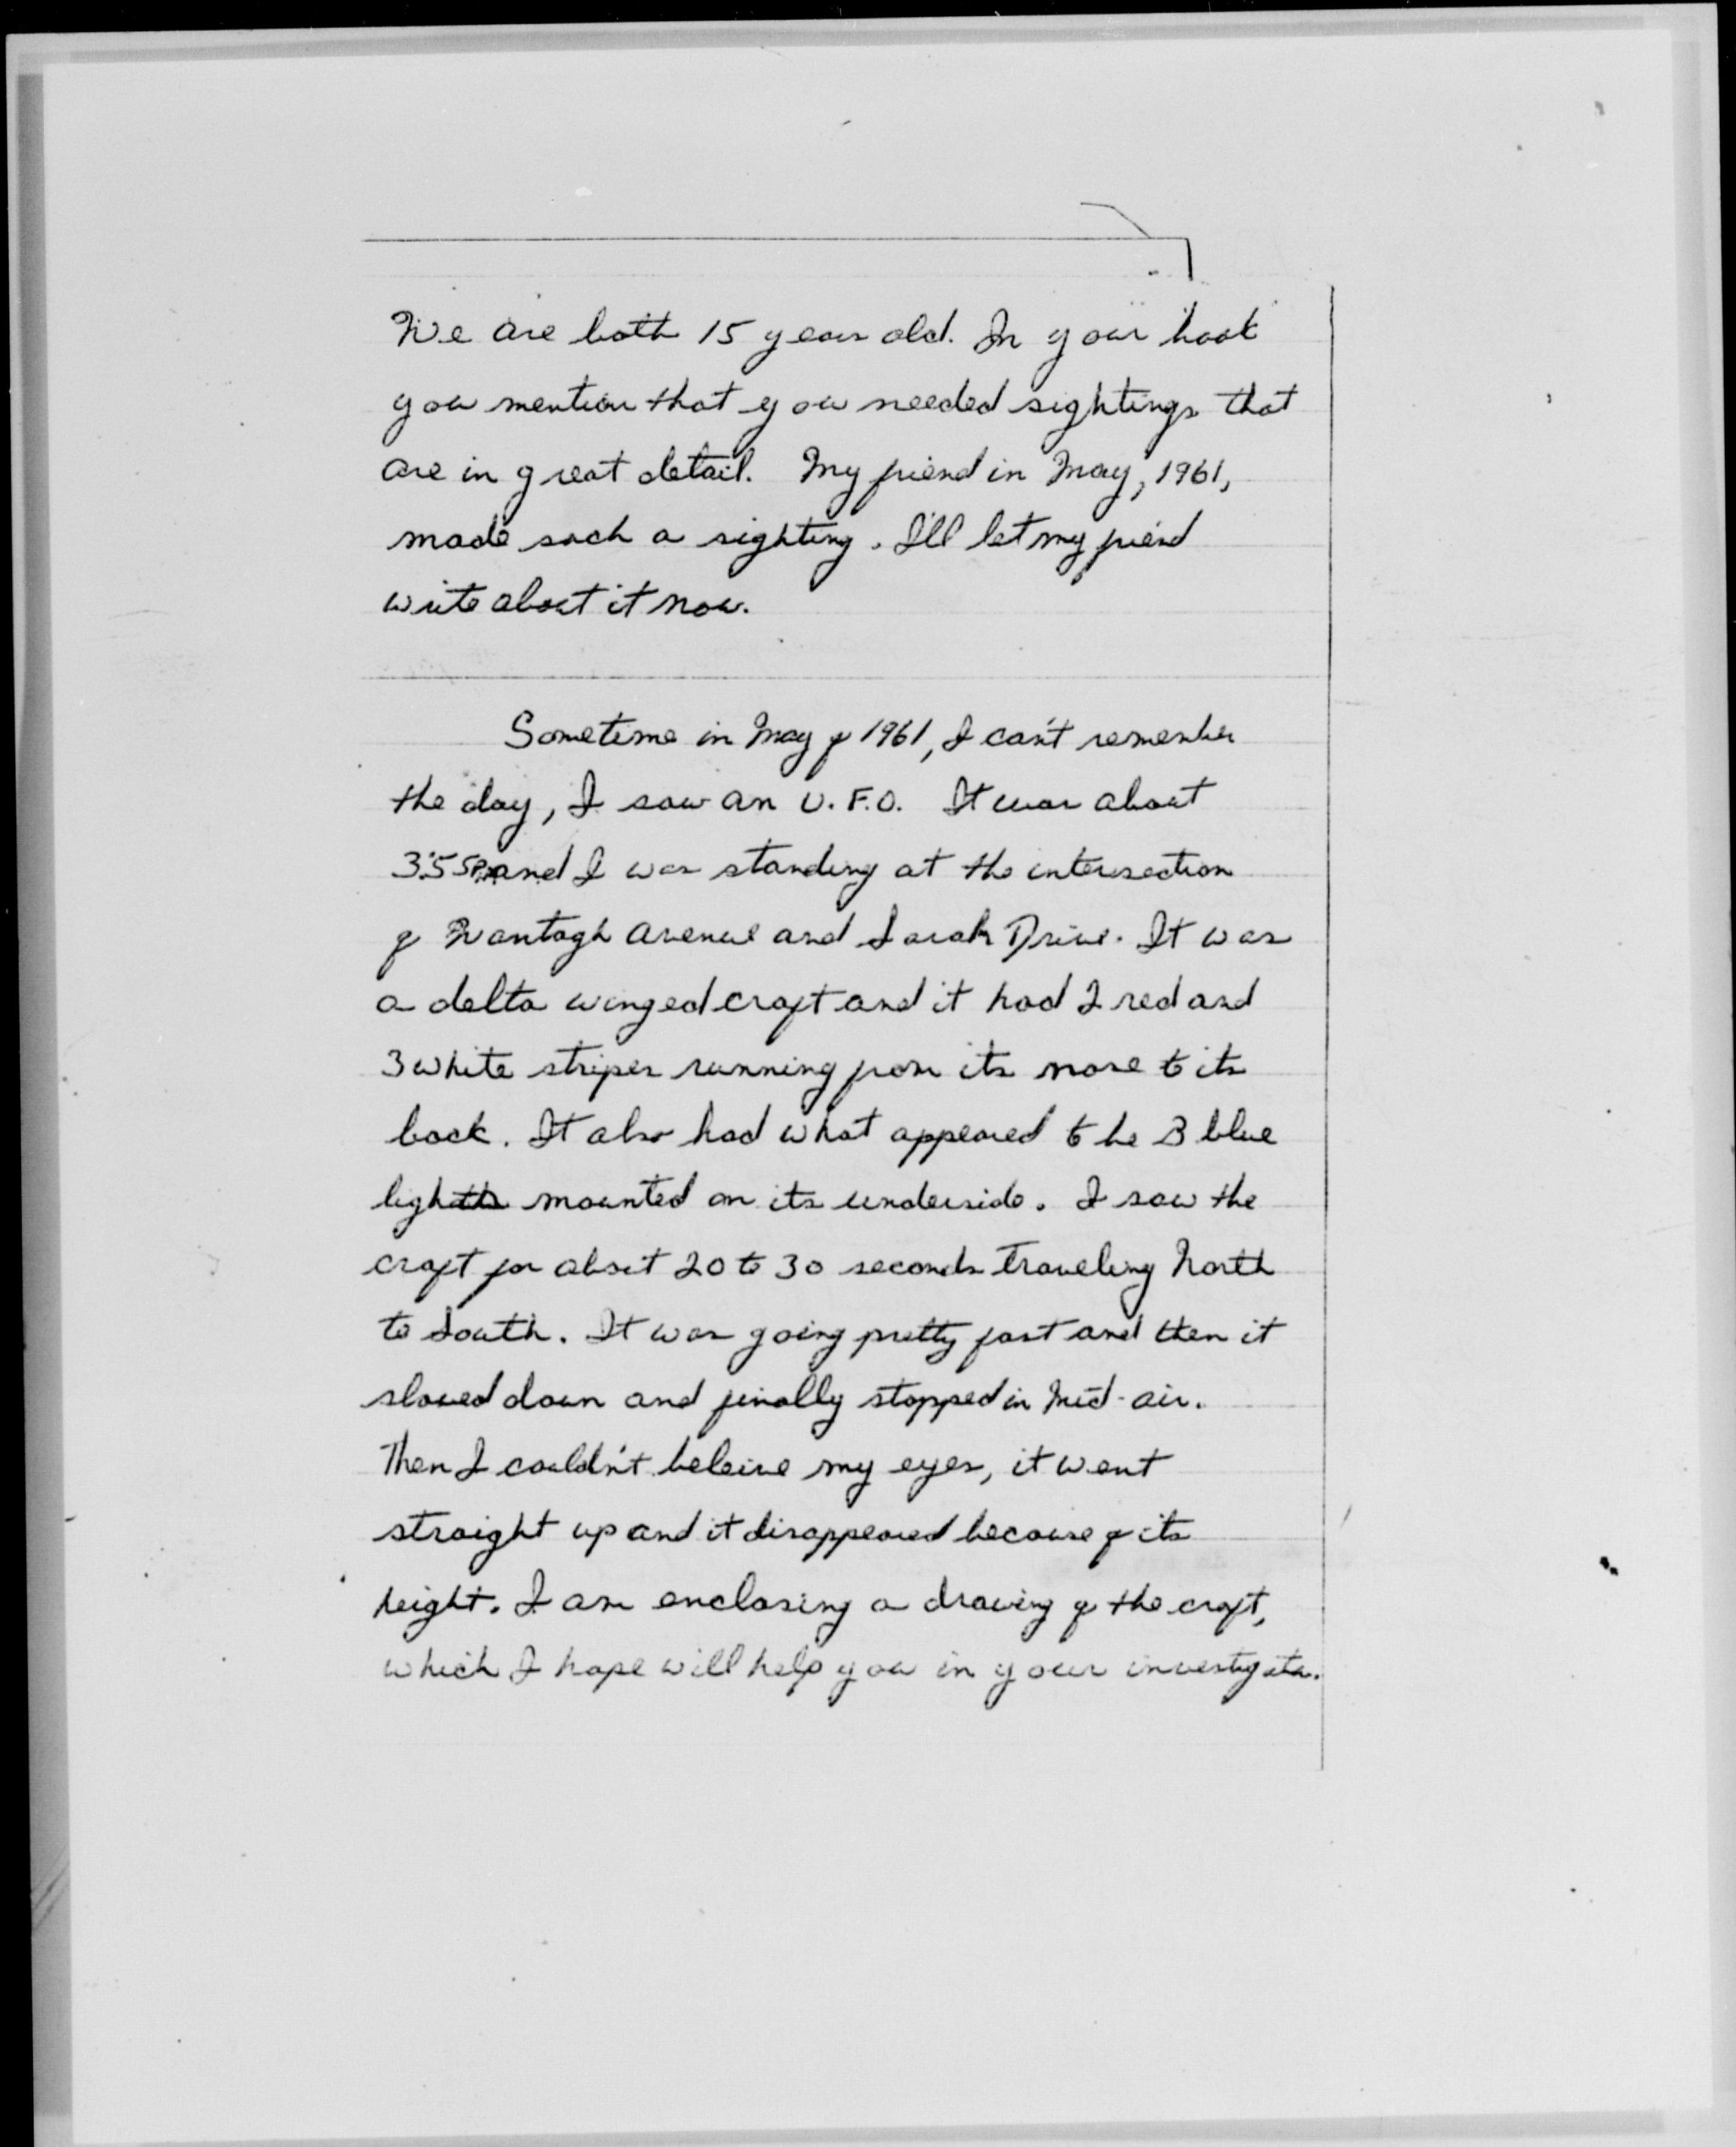 We are both 15 years old. In your book
you mention that you needed sightings that
are in great detail. My friend in May, 1961,
made such a sighting. I'll let my friend
write about it now.
Sometime in May of 1961, I can't remember
the day, I saw an U.F.O. It was about
3:55 and I was standing at the intersection
of Wantagh Avenue and Sarah Drive. It was
a delta winged craft and it had 2 red and
3 white stripes running from its nose to its
back. It also had what appeared to be 3 blue
lights mounted on its underside. I saw the
craft for about 20 to 30 seconds traveling North
to South. It was going pretty fast and then it
slowed down and finally stopped in mid-air.
Then I couldn't beleive my eyes, it went
straight up and it disappeared because of its
height. I am enclosing a drawing of the craft,
which I hope will help you in your